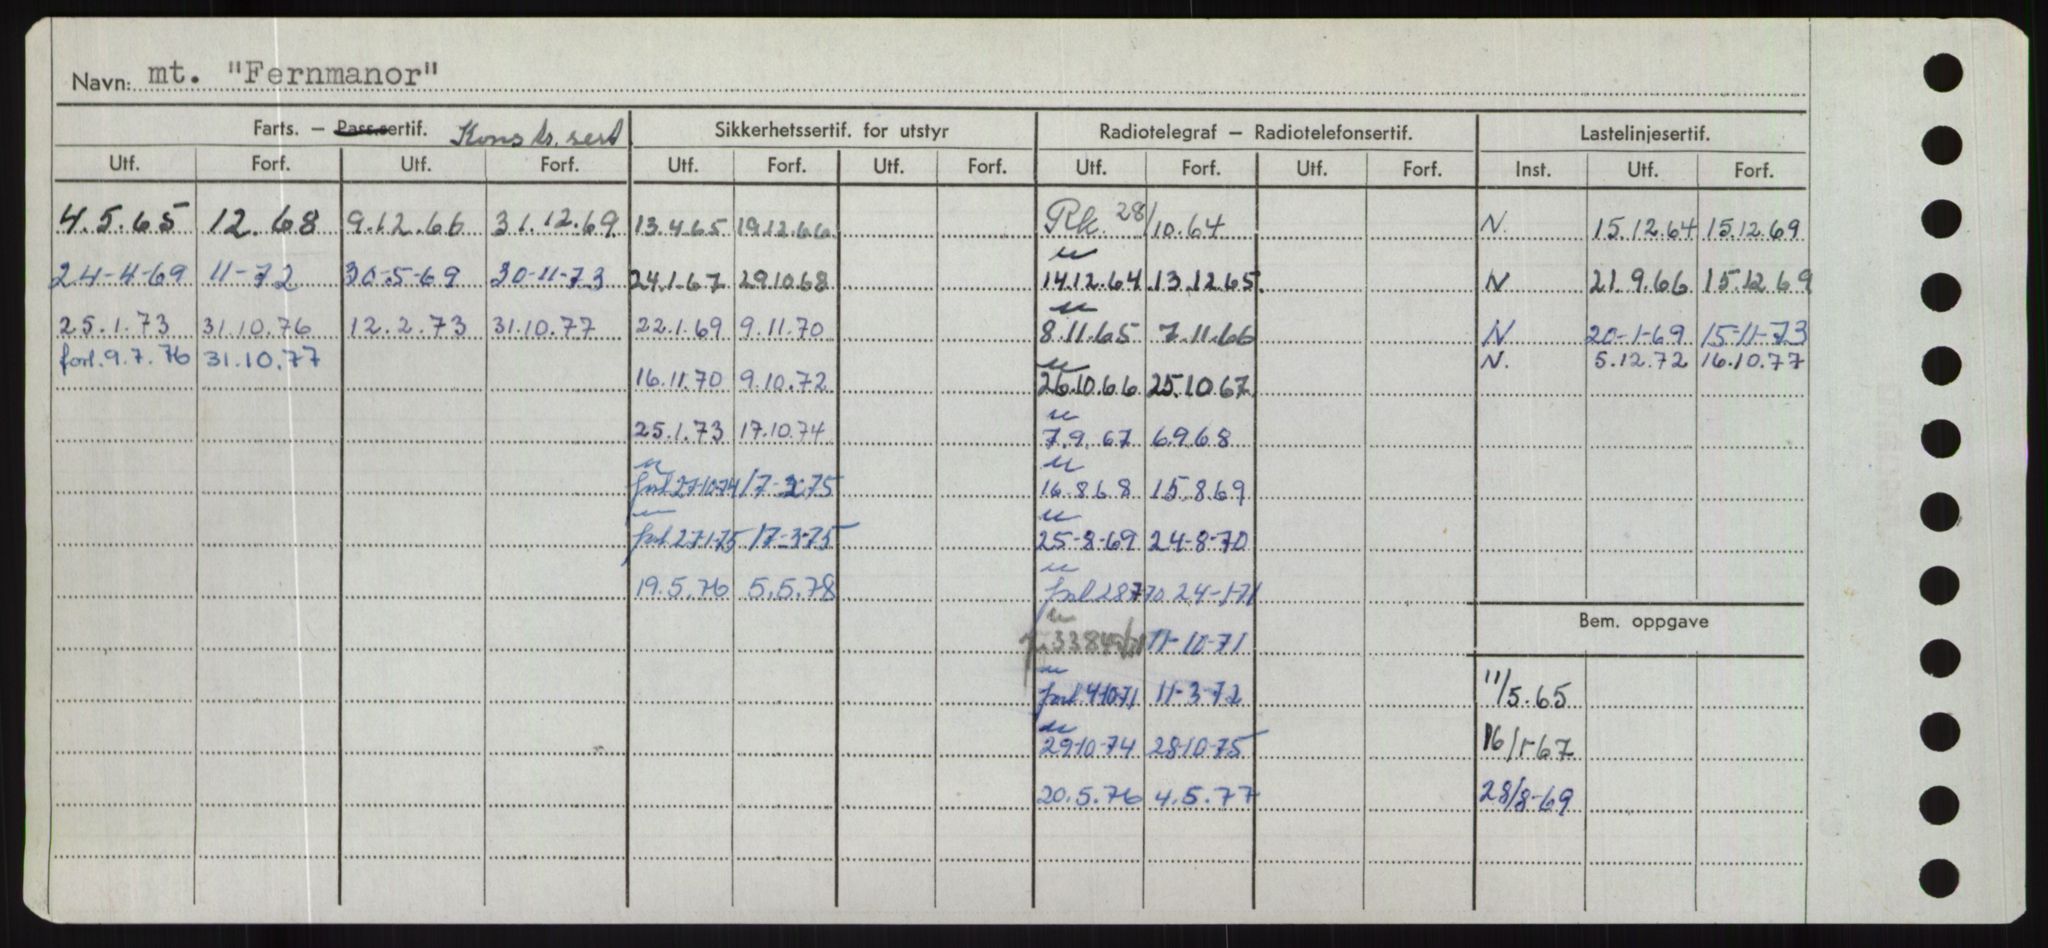 Navn: mt. "Fernmanor"
Farts. – Pass.sertif. Konstr. sert Sikkerhetssertif. for utstyr Radiotelegraf – Radiotelefonsertif. Lastelinjesertif.
Utf. Forf. Utf. Forf. Utf. Forf. Utf. Forf. Utf. Forf. Utf. Forf. Inst. Utf. Forf.
4.5.65 12.68 9.12.66 31.12.69 13.4.65 19.12.66 Rk 28/10.64 N. 15.12.64 15.12.69
24-4-69 11-72 30-5-69 30-11-73 24.1.67 29.10.68 14.12.64 13.12.65 N 21.9.66 15.12.69
25.1.73 31.10.76 12.2.73 31.10.77 22.1.69 9.11.70 8.11.65 7.11.66 N 20-1-69 15-11-73
forl. 9.7.76 31.10.77 N. 5.12.72 16.10.77
16.11.70 9.10.72 26.10.66 25.10.67
25.1.73 17.10.74 7.9.67 6.9.68
forl 27-10-74 17-2-75 16.8.68 15.8.69
forl 27-1-75 17-3-75 25-8-69 24-8-70
19.5.76 5.5.78 forl 28770 24-1-71
Bem. oppgave
11-10-71
forl 4-10-71 11-3-72 11/5.65
29-10-74 28-10-75 16/1-67
20.5.76 4.5.77 28/8-69